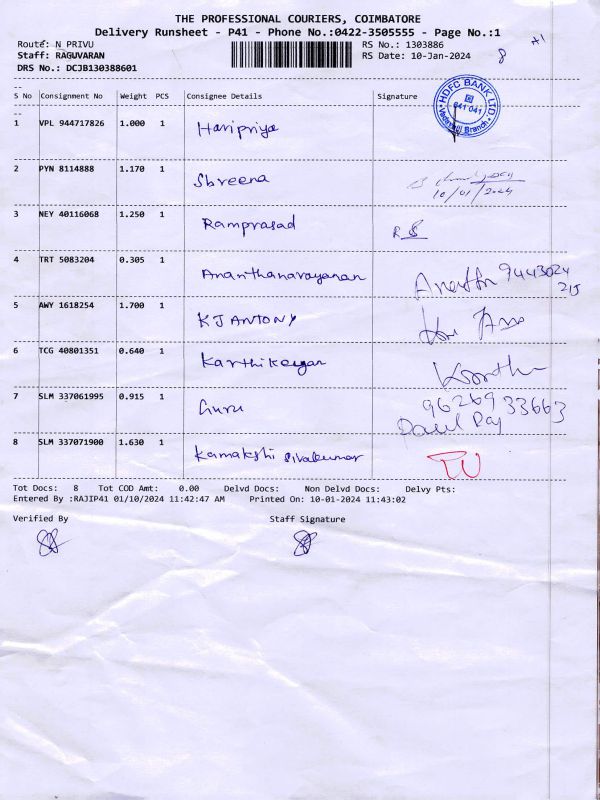 THE PROFESSIONAL COURIERS, COIMBATORE
Delivery Runsheet - P41 - Phone No.:0422-3505555 - Page No.:1
Route: N_PRIVU RS No.: 1303886
Staff: RAGUVARAN RS Date: 10-Jan-2024 8 A1
DRS No.: DCJB130388601
S No Consignment No Weight PCS Consignee Details Signature
HDFC BANK LTD
641 041
Branch
1 VPL 944717826 1.000 1 Haripriya
2 PYN 8114888 1.170 1 Sbreena
10/01/2024
3 NEY 40116068 1.250 1 Ramprasad RS
4 TRT 5083204 0.305 1 Ananthanarayanan 9443024
215
5 AWY 1618254 1.700 1 KJ ANTONY
6 TCG 40801351 0.640 1 Karthikeyan
7 SLM 337061995 0.915 1 Guru 9626933663
Paul Raj
8 SLM 337071900 1.630 1 Kamakshi Sivakumar
Tot Docs: 8 Tot COD Amt: 0.00 Delvd Docs: Non Delvd Docs: Delvy Pts:
Entered By :RAJIP41 01/10/2024 11:42:47 AM Printed On: 10-01-2024 11:43:02
Verified By Staff Signature